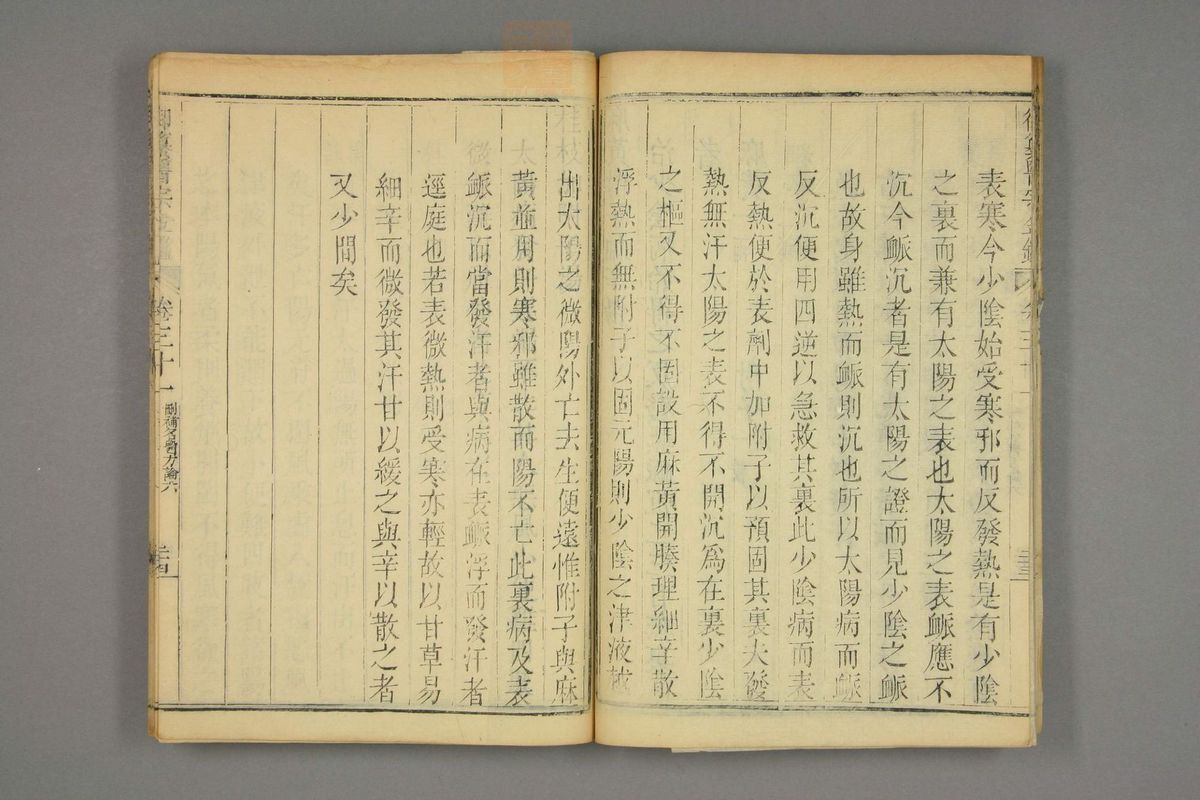 表寒今少陰始受寒邪而反發熱是有少陰
之裏而兼有太陽之表也太陽之表脈應不
沉今脈沉者是有太陽之證而見少陰之脈
也故身雖熱而脈則沉也所以太陽病而脈
反沉便用四逆以急救其裏此少陰病而表
反熱便於表劑中加附子以預固其裏夫發
熱無汗太陽之表不得不開沉為在裏少陰
之樞又不得不固設用麻黃開腠理細辛散
浮熱而無附子以固元陽則少陰之津液越
出太陽之微陽外亡去生便遠惟附子與麻
黃並用則寒邪雖散而陽不亡此裏病及表
脈沉而當發汗者與病在表脈浮而發汗者
逕庭也若表微熱則受寒亦輕故以甘草易
細辛而微發其汗甘以緩之與辛以散之者
又少間矣
卷三十一
刪補名醫方論六